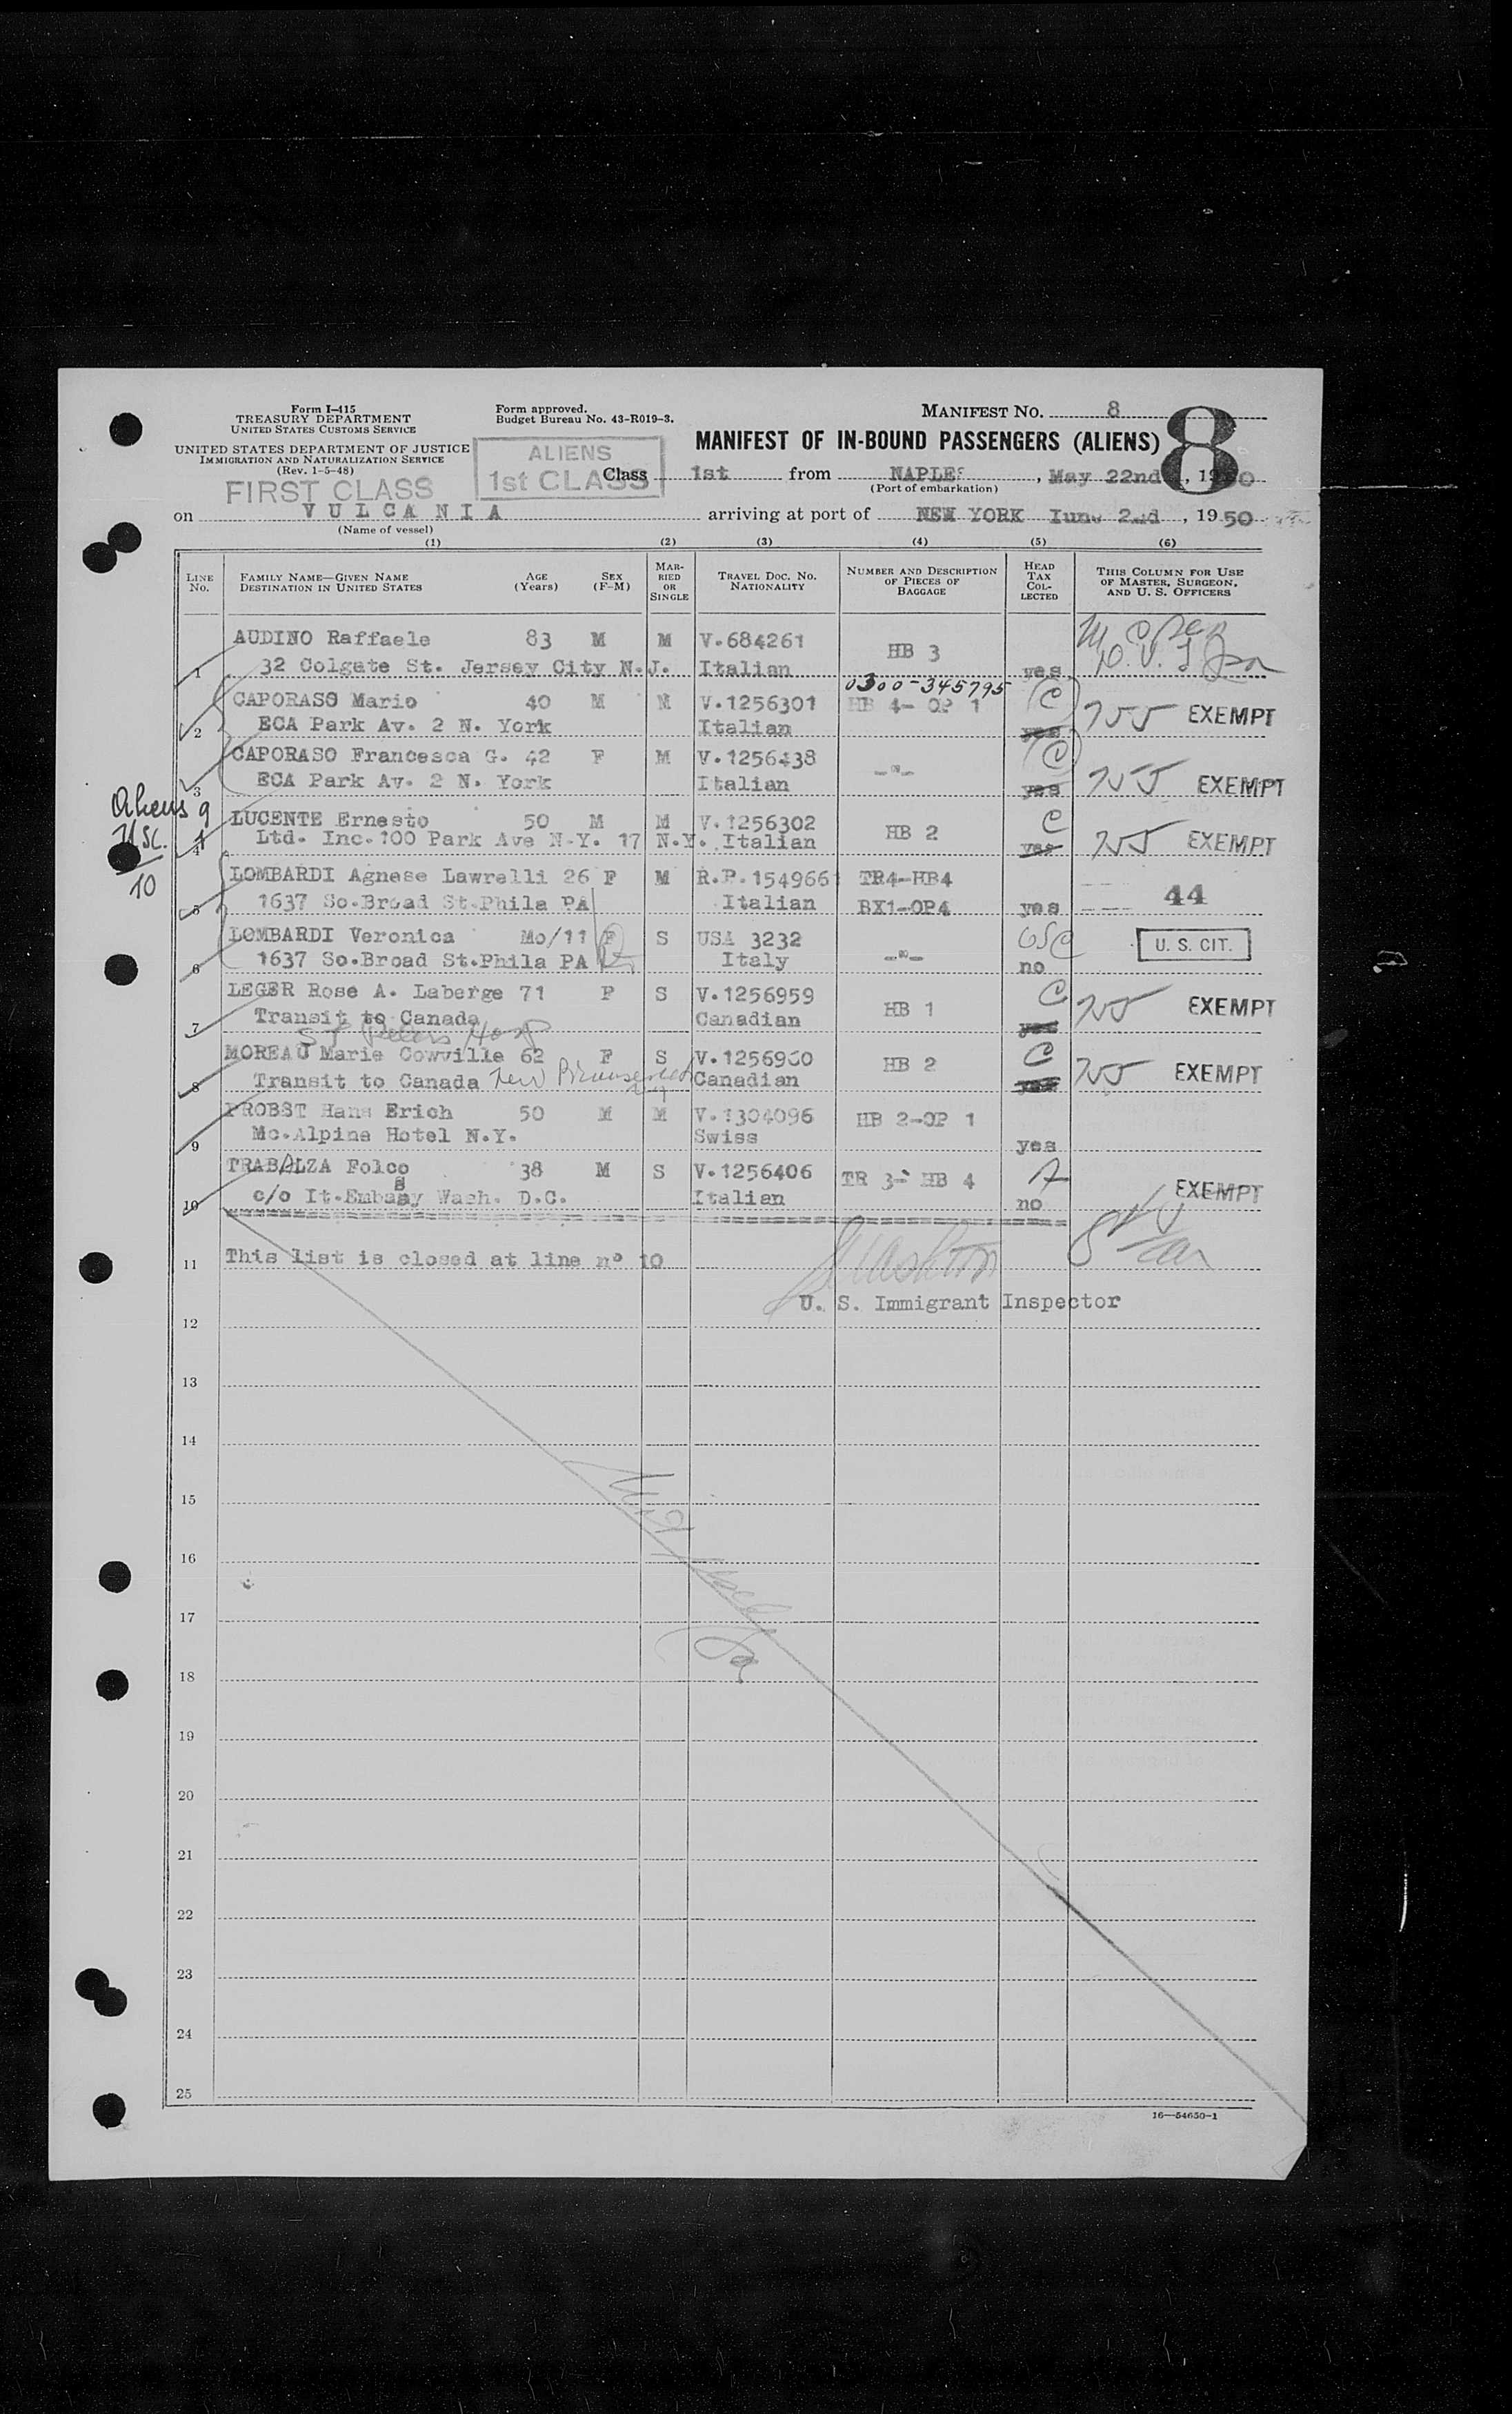 Form I-415
TREASURY DEPARTMENT
UNITED STATES CUSTOMS SERVICE
UNITED STATES DEPARTMENT OF JUSTICE
IMMIGRATION AND NATURALIZATION SERVICE
(Rev. 1-5-48)
Form approved.
Budget Bureau No. 43-R019-3.
MANIFEST NO. 8
8
MANIFEST OF IN-BOUND PASSENGERS (ALIENS)
ALIENS
1st CLASS
FIRST CLASS
Class 1st from NAPLES, May 22nd, 19
(Port of embarkation)
on VULCANIA arriving at port of NEW YORK, 1950
(Name of vessel)
(1) (2) (3) (4) (5) (6)
LINE NO.
FAMILY NAME—GIVEN NAME
DESTINATION IN UNITED STATES
AGE (Years)
SEX (F-M)
MARRIED OR SINGLE
TRAVEL DOC. NO. NATIONALITY
NUMBER AND DESCRIPTION OF PIECES OF BAGGAGE
HEAD TAX COLLECTED
THIS COLUMN FOR USE OF MASTER, SURGEON, AND U. S. OFFICERS
AUDINO Raffaele 83 M M V.684261 HB 3
1 32 Colgate St. Jersey City N.J. Italian yes
0300-345795
CAPORASO Mario 40 M M V.1256301 HB 4- OP 1 C
2 ECA Park Av. 2 N. York Italian yes EXEMPT
CAPORASO Francesca G. 42 F M V.1256438 -"- C
3 ECA Park Av. 2 N. York Italian yes EXEMPT
9
USC. 1
10
LUCENTE Ernesto 50 M M V.1256302 HB 2 C
4 Ltd. Inc.100 Park Ave N.Y. 17 N.Y. Italian yes EXEMPT
LOMBARDI Agnese Lawrelli 26 F M R.P.154966 TR4-HB4 44
5 1637 So.Broad St.Phila PA Italian BX1-OP4 yes
LOMBARDI Veronica Mo/11 F S USA 3232 -"- USC U. S. CIT.
6 1637 So.Broad St.Phila PA Italy no
LEGER Rose A. Laberge 71 F S V.1256959 HB 1 C EXEMPT
7 Transit to Canada Canadian yes
St Peters Hosp
MOREAU Marie Cowville 62 F S V.1256960 HB 2 C
8 Transit to Canada New Brunswick Canadian yes EXEMPT
PROBST Hans Erich 50 M M V.1304096 HB 2-OP 1
9 Mc.Alpine Hotel N.Y. Swiss yes
TRABALZA Folco 38 M S V.1256406 TR 3- HB 4 A EXEMPT
10 c/o It.Embassy Wash. D.C. Italian no
11 This list is closed at line nº 10
U. S. Immigrant Inspector
12
13
14
15
16
17
18
19
20
21
22
23
24
25
16—54650-1